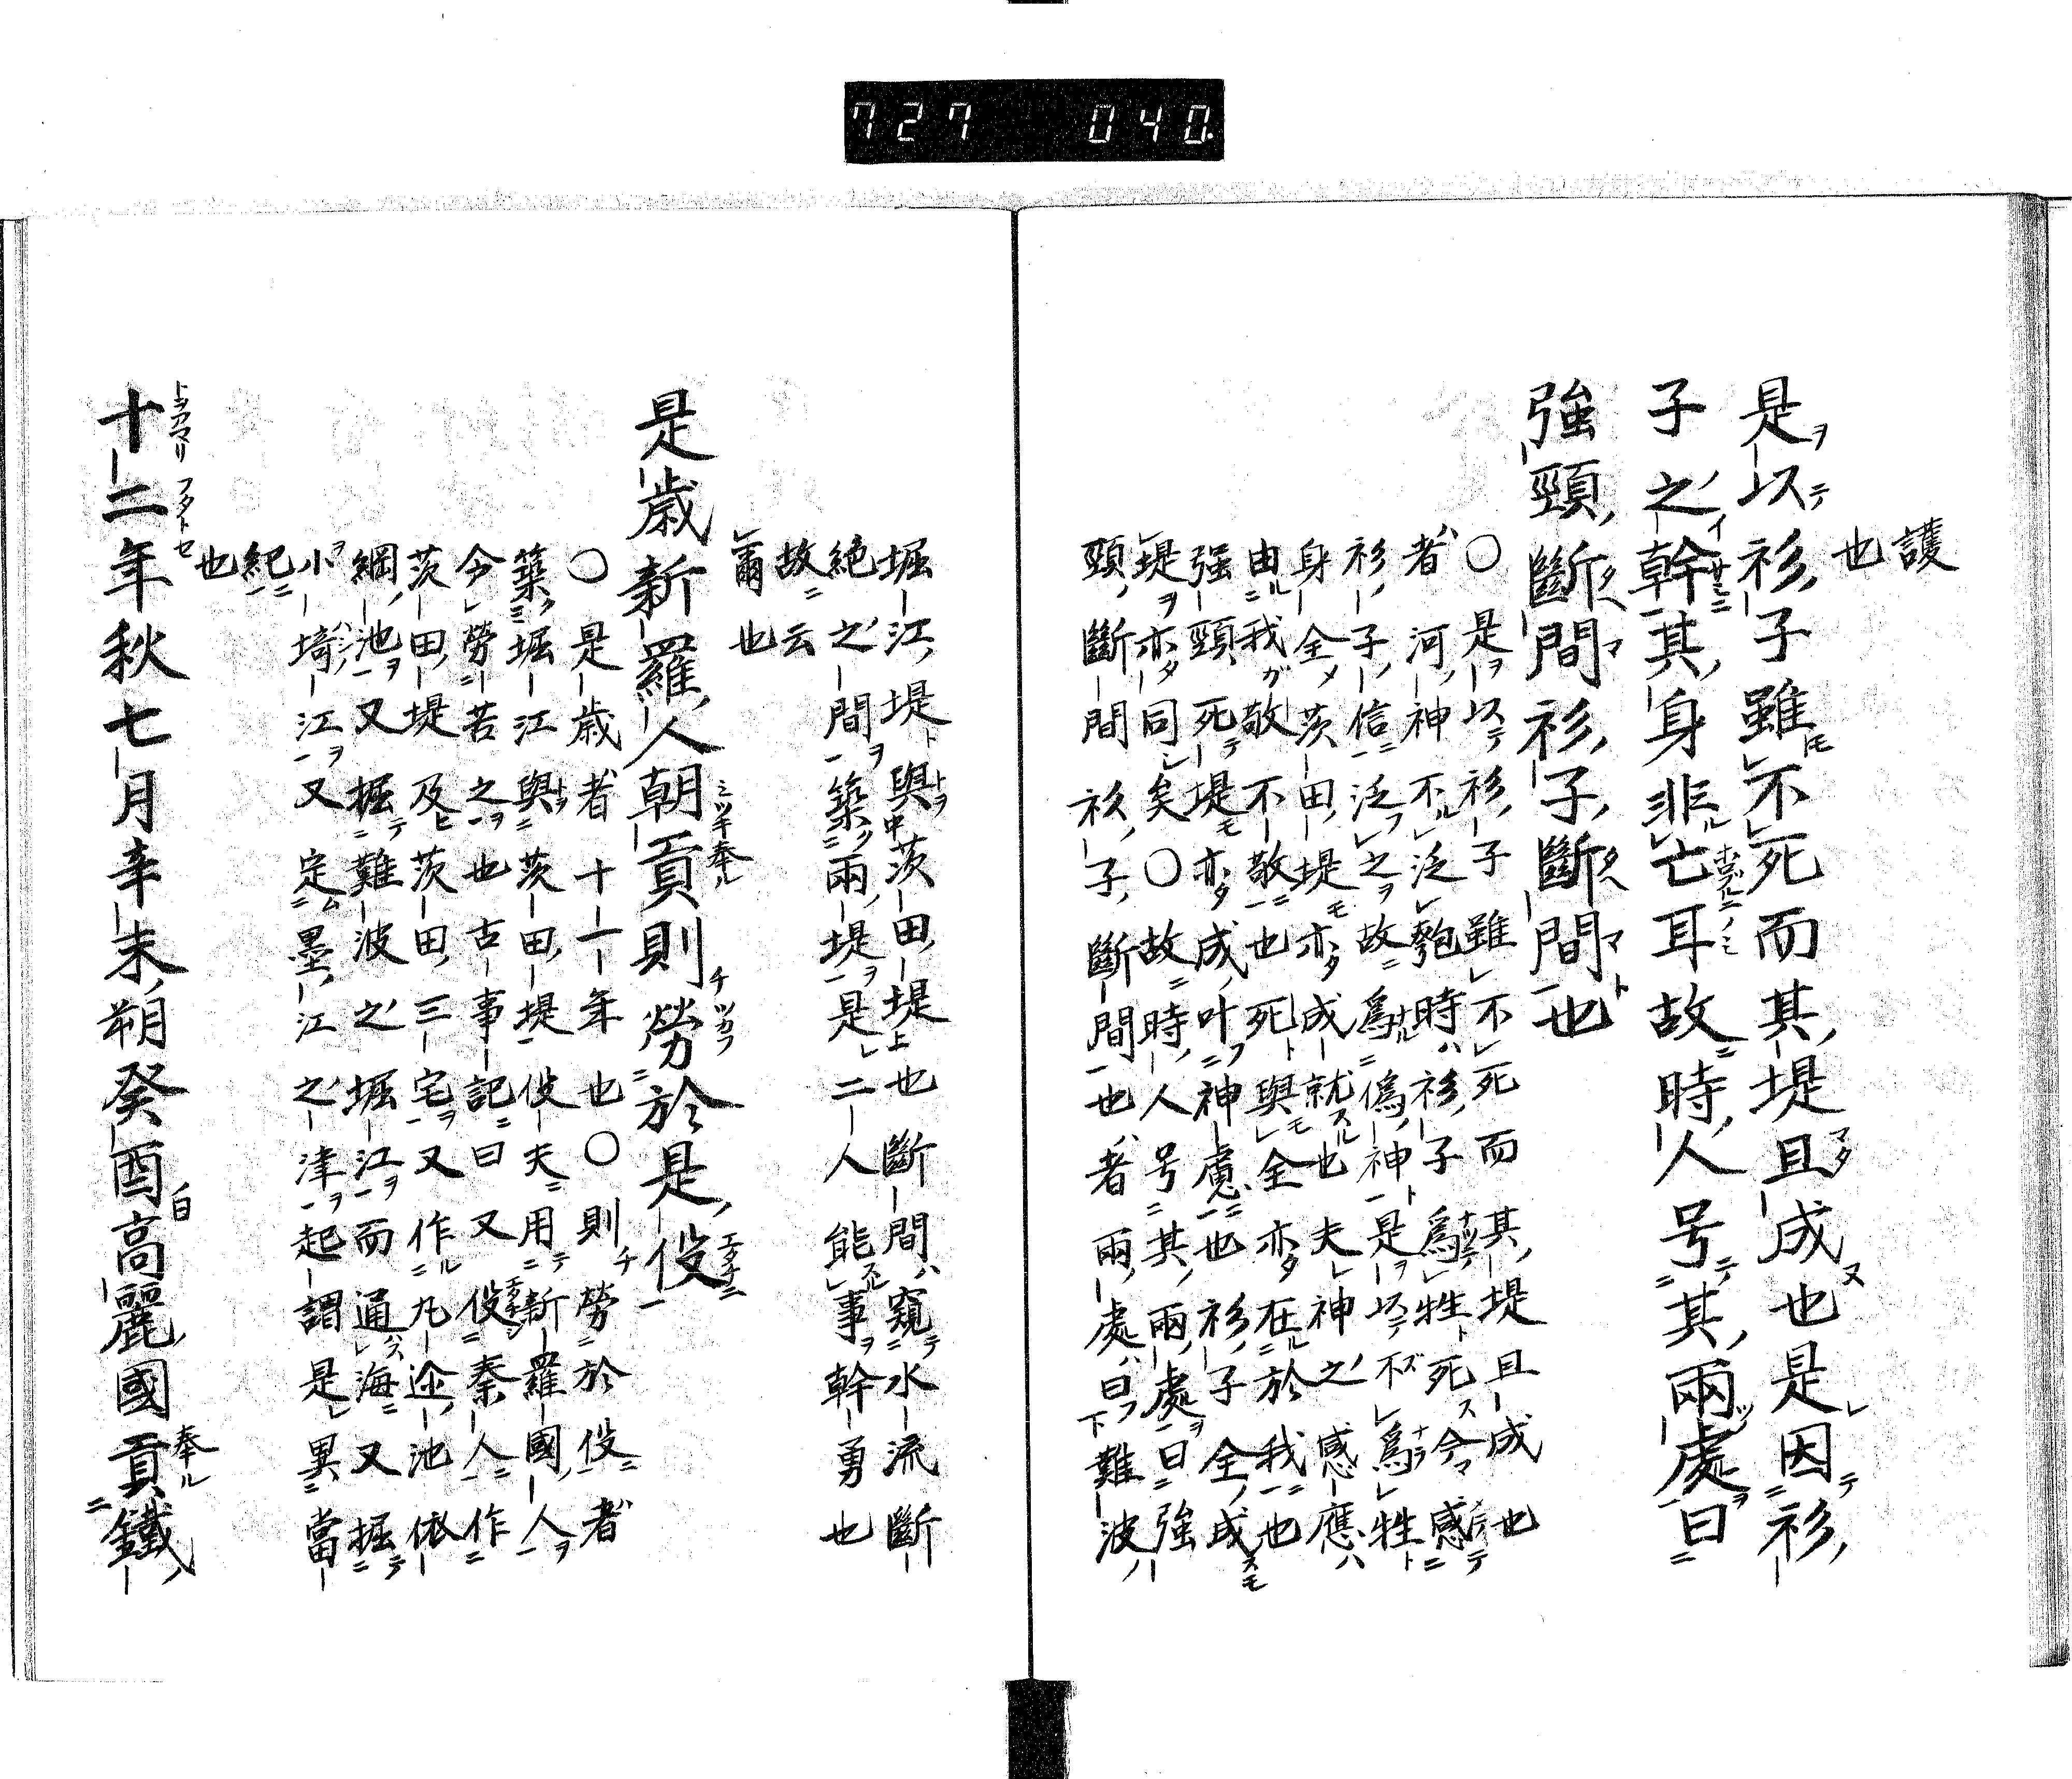 727 040.
護
也
是以衫子雖不死而其堤且成也是因衫
子之幹其身非亡耳故時人号其兩處曰
強頸斷間衫子斷間也
○是以衫子雖不死而其堤且成也
者河神不泛匏時衫子爲牲死今感
衫子信泛之故爲偽神是以不爲牲
身全茨田堤亦成就也夫神之感應
由我敬不敬也死與全亦在於我也
强頸死堤亦成叶神慮也衫子全成
堤亦同矣○故時人号其兩處曰強
頸斷間衫子斷間也者兩處曰難波
堀江堤與茨田堤也斷間窺水流斷
絶之間築兩堤是二人能事幹勇也
故云
爾也
是歳新羅人朝貢則勞於是役
○是歳者十一年也○則勞於役者
築堀江與茨田堤役夫用新羅國人
令勞苦之也古事記曰又役秦人作
茨田堤及茨田三宅又作丸迩池依
網池又掘難波之堀江而通海又掘
小埼江又定墨江之津起謂是異當
紀
也
十二年秋七月辛未朔癸酉高麗國貢鐵